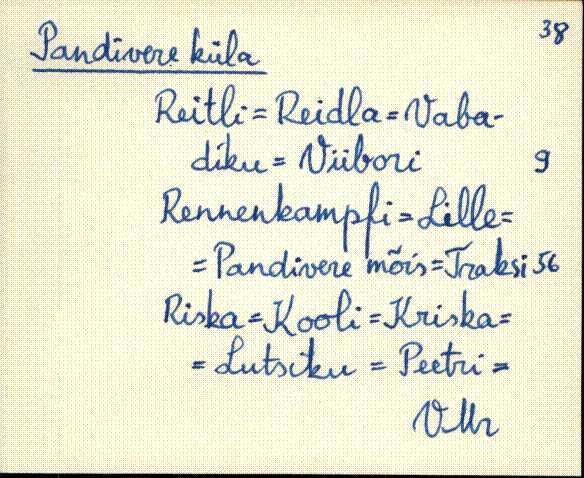 38
Pandivere küla
Reitli = Reidla = Vaba-
diku = Viibori 9
Rennenkampfi = Lille =
= Pandivere mõis = Traksi 56
Riska = Kooli = Kriska =
= Lutsiku = Peetri =
VMr